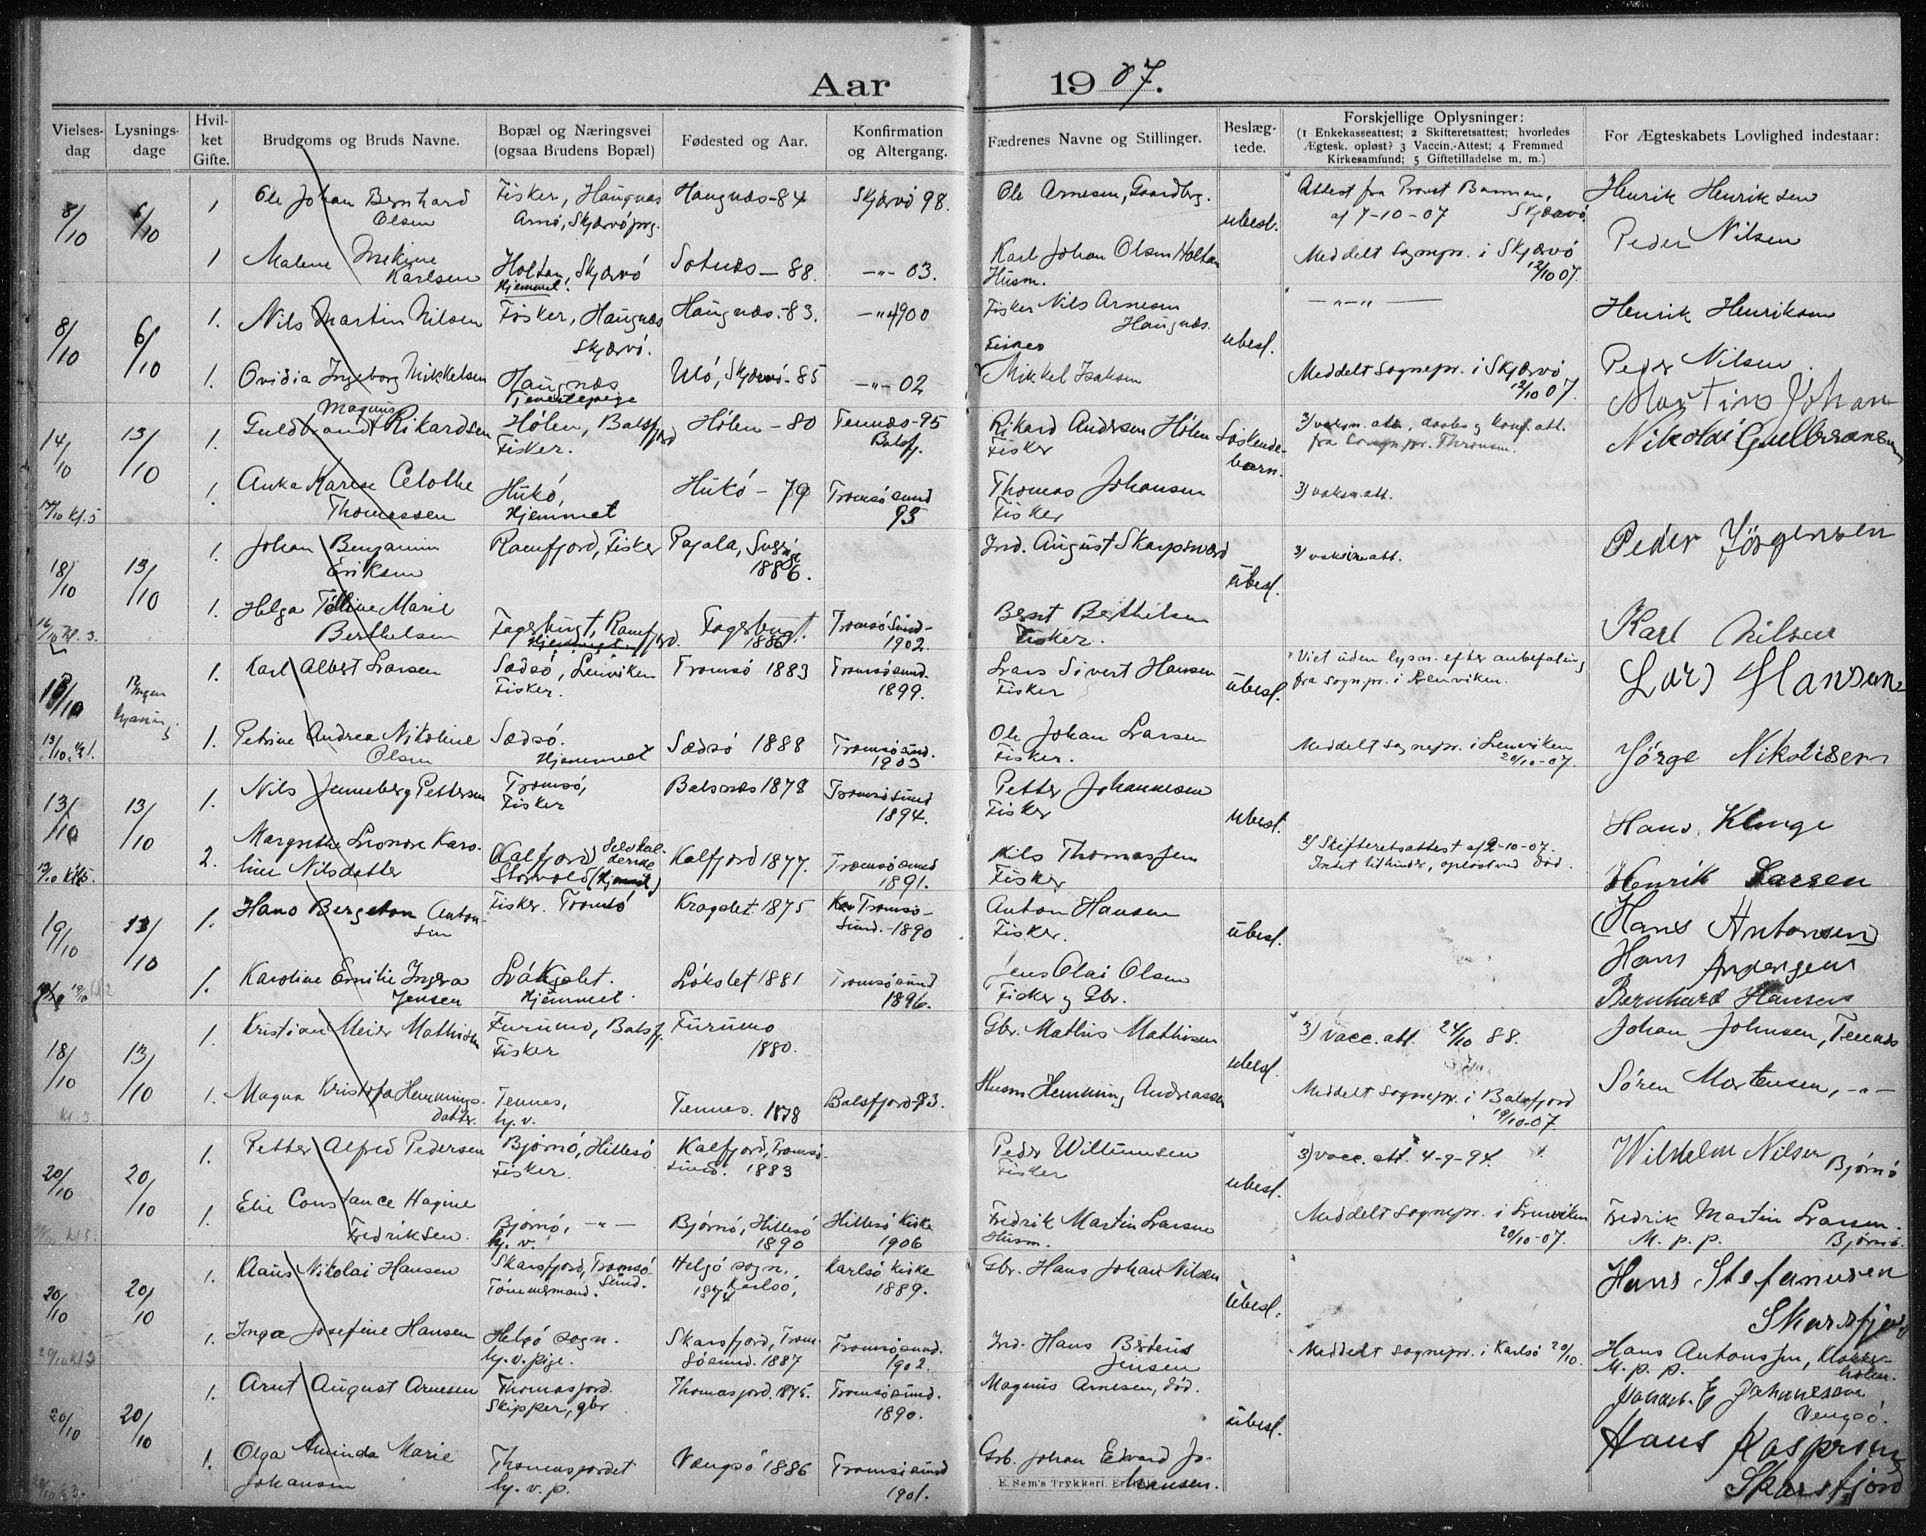 Aar 1907.
Vielses-dag
Lysnings-dage
Hvil-ket Gifte.
Brudgoms og Bruds Navne.
Bopæl og Næringsvei (ogsaa Brudens Bopæl)
Fødested og Aar.
Konfirmation og Altergang.
Fædrenes Navne og Stillinger.
Beslæg-tede.
Forskjellige Oplysninger:
(1 Enkekasseattest; 2 Skifteretsattest; hvorledes Ægtesk. opløst? 3 Vaccin.-Attest; 4 Fremmed Kirkesamfund; 5 Giftetilladelse m. m.)
For Ægteskabets Lovlighed indestaar:
8/10 6/10 1 Ole Johan Bernhard Olsen Fisker, Haugnæs Arnö, Skjærvö prg. Haugnæs-84 Skjærvö 98. Ole Arnesen, Gaardbrg. ubesl. Attest fra Provst Bamman, Skjærvö af 7-10-07 Henrik Henriksen
1 Malene Karlsen Holtan, Skjærvö Hjemmet. Sotnæs-88. -"- 03. Karl Johan Olsen Holtan Husm. Meddelt sognepr. i Skjærvö 12/10 07. Peder Nilsen
8/10 6/10 1. Nils Martin Nilsen Fisker, Haugnæs Skjærvö. Haugnæs-83. -"- 1900 Fisker Nils Arnesen Haugnæs. ubesl. -"-"- Henrik Henriksen
1. Ovidia Ingeborg Mikkelsen Haugnæs Tjenestepige Ulö, Skjærvö-85 -"- 02 Fisker Mikkel Isaksen Meddelt sognepr. i Skjærvö 12/10 07. Peder Nilsen.
14/10 13/10 1. Guldbrandt Magnus Rikardsen Hølen, Balsfjord Fisker. Hølen-80 Tennæs-95 Balsfj. Rikard Andersen Hølen Fisker Søskendebarn. 3) vaksn. att., daabs og konf. att. fra Sognepr. Martins Johan
Nikolai Gulbransen
14/10 kl. 5 1. Anka Karese Thomassen Hükö, Hjemmet Hükö-79 Tromsösund 93 Thomas Johansen Fisker 3) vaksn. att.
18/10 13/10 1. Johan Benjamin Eriksen Ramfjord, Fisker Pajala, Sverige 1886. Ind. August Skarpsvärd ubesl. 3) vaksinatt. Peder Jörgensen
1. Helga Marie Berthelsen Fagerbugt, Ramfjord. Hjemmet Fagerbugt. 1886 Tromsö Sund- 1902. Bernt Berthelsen Fisker. Karl Nilsen
Ingen lysning 1. Karl Albert Larsen Sædsö, Lenviken Fisker. Tromsö 1883 Tromsösund. 1899. Lars Sivert Hansen Fisker ubesl. Viet uden lysn. efter anbefaling fra sognpr. i Lenviken. Lars Hansen
1. Petrine Andrea Nikoline Olsen Sædsö. Hjemmet Sædsö 1888 Tromsösund. 1903 Ole Johan Larsen Fisker. Meddelt sognepr. i Lenviken 20/10-07. Jörge Nikolisen
13/10 13/10 1. Nils Jennsberg Pettersen Tromsö, Fisker Balsnæs 1878 Tromsösund 1894. Petter Johannesen Fisker ubesl. Hans Klinge
2. Margrethe Leonore Karoline Nilsdatter Kalfjord Storvold (Hjemmet) Kalfjord 1877. Tromsösund 1891. Nils Thomassen Fisker 2) Skifteretsattest af 2-10-07. Henrik Larsen
19/10 13/10 1. Hans Bergeton Antonsen Fisker. Tromsö Kragslet 1875 Tromsö-Sund.-1890 Anton Hansen Fisker. ubesl. Hans Antonsen
Hans
1. Karoline Emilie Ingra Jensen Hjemmet. Lökslet 1881 Tromsösund 1896. Jens Olai Olsen Fisker og Gbr. Bernhard Hansen
18/10 13/10 1. Kristian Meier Mathisen Furumo, Balsf. Fisker Furumo 1880. Gbr. Mathis Mathisen ubesl. 3) vacc. att. 24/10 88. Johan Johnsen, Tennæs
kl. 3 1. Magna Kristofa Hemmingsdatter. Tennes, hj. v. Tennes. 1878 Balsfjord-93. Husm Hemming Andreassen Meddelt sognepr. i Balsfjord 19/10-07. Sören Mortensen, -"-
20/10 20/10 1. Petter Alfred Pedersen Bjørnö, Hillesö Fisker. Kalfjord, Tromsösund. 1883 Peder Willumsen Fisker ubesl. 3) vacc. att. 4-9-94. Wilhelm Nilsen Bjørnö
1. Elie Constance Hagine Fredriksen. Bjørnö, -"- hj. v. Bjørnö, Hillesö 1890 Hillesö Kirke 1906 Fredrik Martin Larsen Husm. Meddelt sognepr. i Lenviken 20/10-07. Fredrik Martin Larsen. M. p. p. Bjørnö.
20/10 20/10 1. Klaus Nikolai Hansen Skarsfjord, Tromsö Sund. Tömmermand. Helgö sogn, Karlsö, 1874 Karlsö Kirke 1889. Gbr. Hans Johan Nilsen ubesl. Hans Stefanusen Skarsfjord
20/10 kl 3 1. Inga Josefine Hansen Helgö sogn. hj. v. pige. Skarsfjord, Tromsösund. 1887 Tromsösund. 1902. Ind. Hans Jensen Meddelt sognepr. i Karlsö 20/10. Hans Antonssen, M. p. p.
20/10 20/10 1. Arnt August Arnesen Thomasjord. Skipper, gbr Thomasjord. 1875. Tromsösund. 1890. Magnus Arnesen, död. ubesl. E Johanesen Vengsö.
1. Olga Aminda Marie Johansen Thomasjordet hj. v. p. Vængsö 1886 Tromsösund 1901. Grb. Johan Edvard Johansen. Hans Kasprsen Skarsfjord
E. Sem's Trykkeri